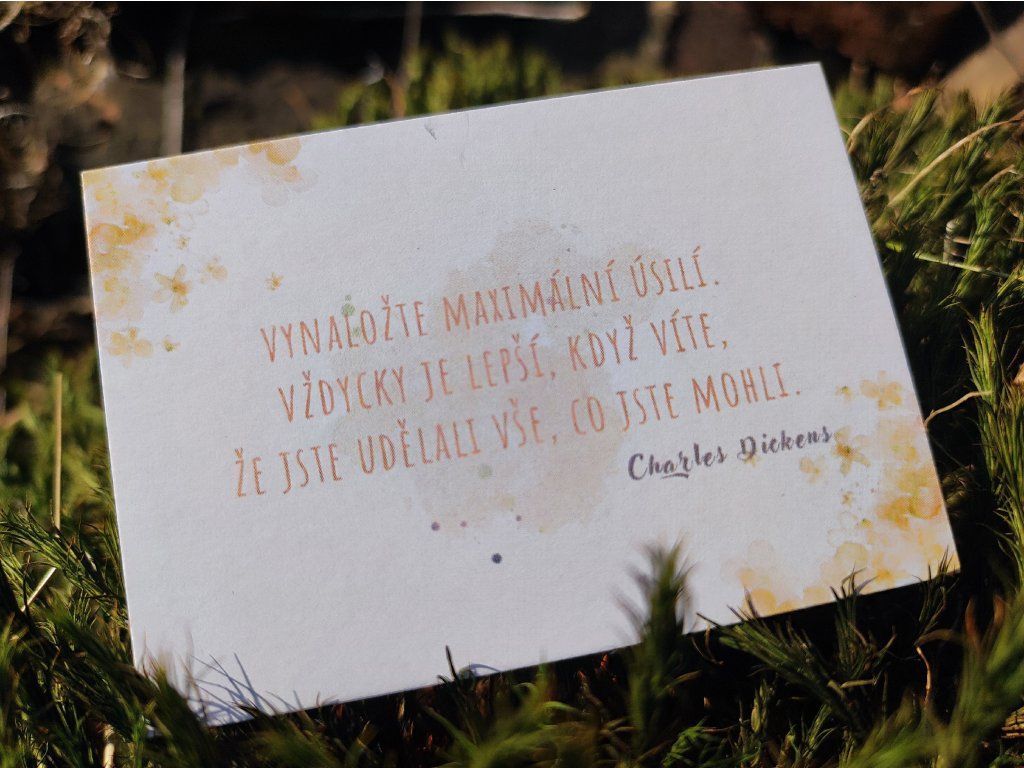 VYNALOŽTE MAXIMÁLNÍ ÚSILÍ.
VŽDYCKY JE LEPŠÍ, KDYŽ VÍTE,
ŽE JSTE UDĚLALI VŠE, CO JSTE MOHLI.
Charles Dickens